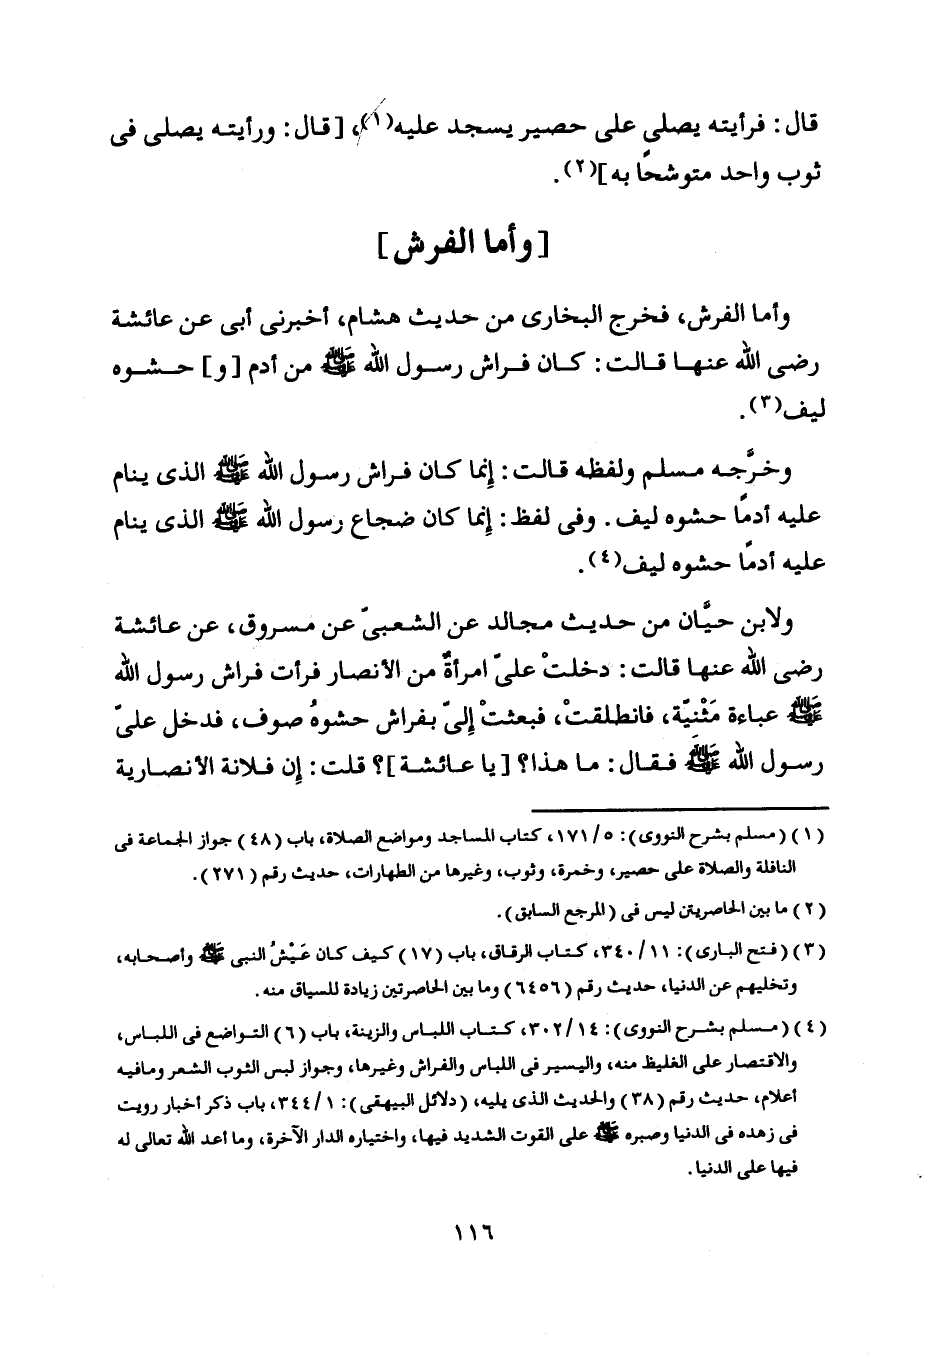 قال: فرأيته يصلى على حصير يسجد عليه(١)، [قال: ورأيته يصلى فى
ثوب واحد متوشحًا به](٢).
[وأما الفرش]
وأما الفرش، فخرج البخارى من حديث هشام، أخبرنى أبى عن عائشة
رضى الله عنها قالت: كان فراش رسول الله ﷺ من أدم [و] حشوه
ليف(٣).
وخرَّجه مسلم ولفظه قالت: إنما كان فراش رسول الله ﷺ الذى ينام
عليه أدمًا حشوه ليف. وفى لفظ: إنما كان ضجاع رسول الله ﷺ الذى ينام
عليه أدمًا حشوه ليف(٤).
ولابن حيَّان من حديث مجالد عن الشعبىّ عن مسروق، عن عائشة
رضى الله عنها قالت: دخلتْ علىّ امرأةٌ من الأنصار فرأت فراش رسول الله
ﷺ عباءة مَثْنِيّة، فانطلقتْ، فبعثتْ إلىّ بفراش حشوهُ صوف، فدخل علىّ
رسول الله ﷺ فقال: ما هذا؟ [يا عائشة]؟ قلت: إن فلانة الأنصارية
(١) (مسلم بشرح النووى): ٥/ ١٧١، كتاب المساجد ومواضع الصلاة، باب (٤٨) جواز الجماعة فى
النافلة والصلاة على حصير، وخمرة، وثوب، وغيرها من الطهارات، حديث رقم (٢٧١).
(٢) ما بين الحاصريتن ليس فى (المرجع السابق).
(٣) (فتح البارى): ١١/ ٣٤٠، كتاب الرقاق، باب (١٧) كيف كان عَيْشُ النبى ﷺ وأصحابه،
وتخليهم عن الدنيا، حديث رقم (٦٤٥٦) وما بين الحاصرتين زيادة للسياق منه.
(٤) (مسلم بشرح النووى): ١٤/ ٣٠٢، كتاب اللباس والزينة، باب (٦) التواضع فى اللباس،
والاقتصار على الغليظ منه، واليسير فى اللباس والفراش وغيرها، وجواز لبس الثوب الشعر ومافيه
أعلام، حديث رقم (٣٨) والحديث الذى يليه، (دلائل البيهقى): ١/ ٣٤٤، باب ذكر أخبار رويت
فى زهده فى الدنيا وصبره ﷺ على القوت الشديد فيها، واختياره الدار الآخرة، وما أعد الله تعالى له
فيها على الدنيا.
١١٦